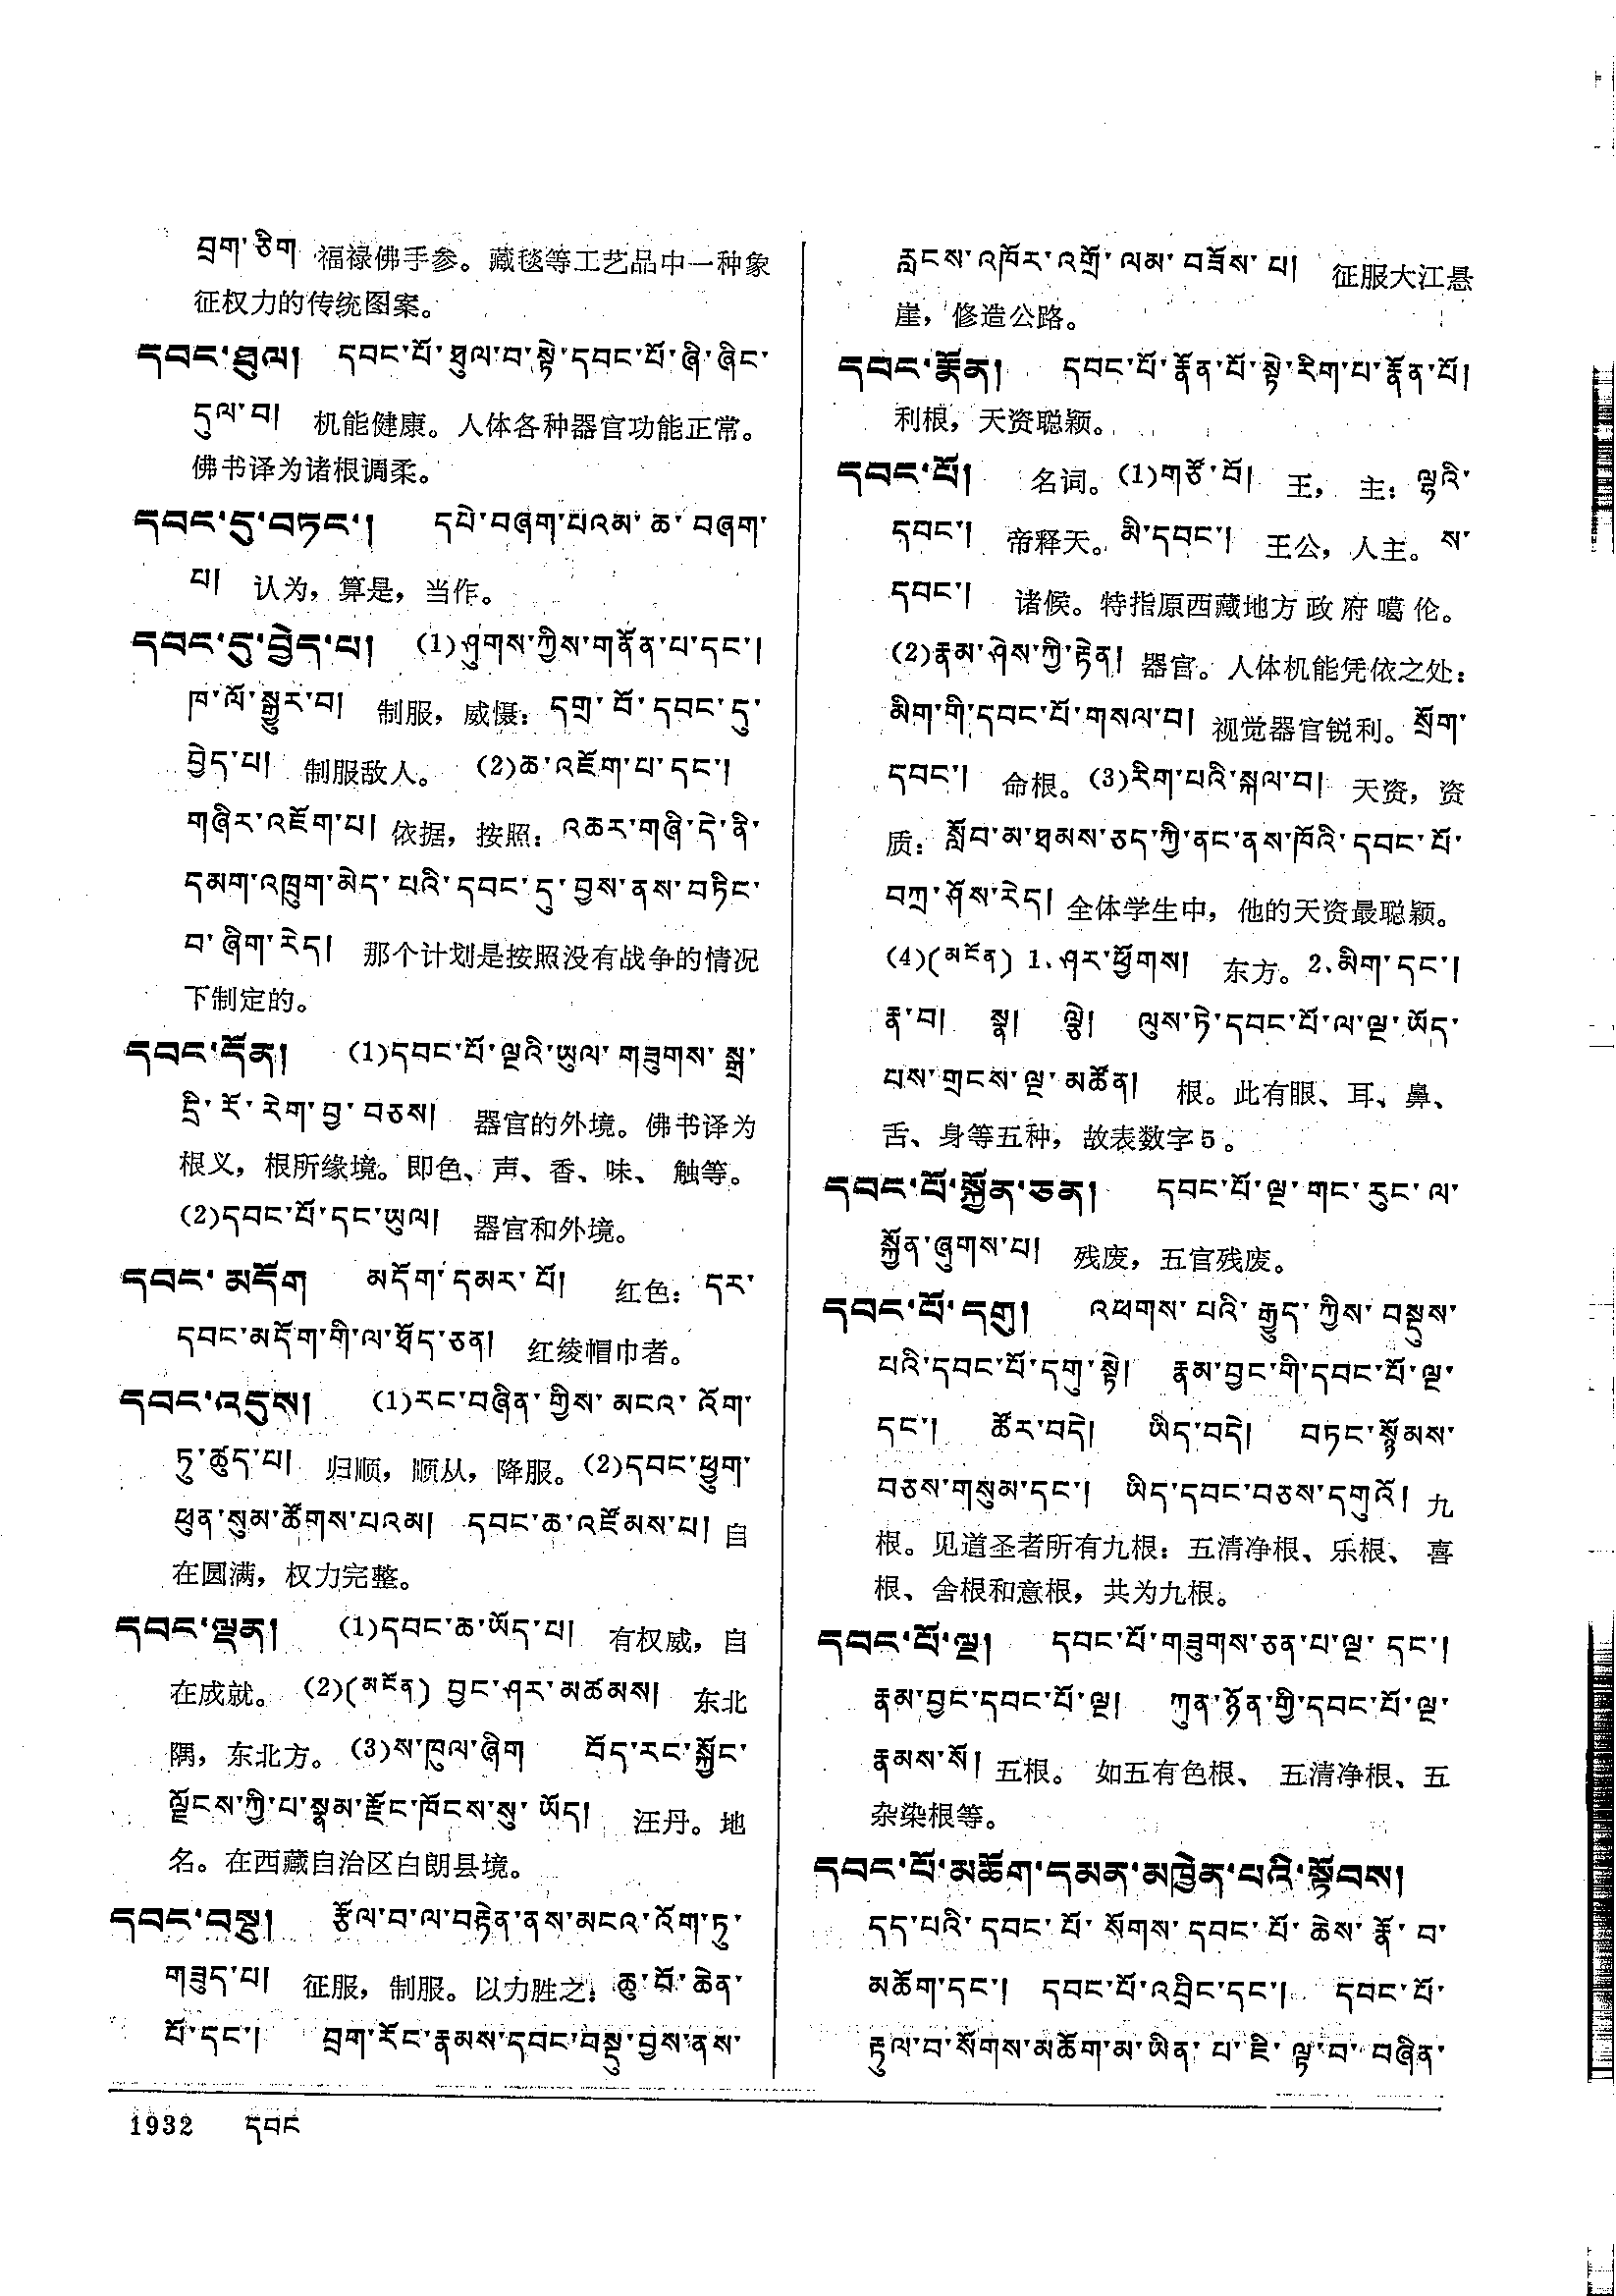 བྲག་ཅིག 福禄佛手参。藏毯等工艺品中一种象
征权力的传统图案。
དབང་ཐུལ། དབང་པོ་ཐུལ་བ་སྟེ་དབང་པོ་ཞི་ཞིང་
དུལ་བ། 机能健康。人体各种器官功能正常。
佛书译为诸根调柔。
དབང་དུ་བཏང་། དཔེ་བཞག་པའམ་ཆ་བཞག་
པ། 认为，算是，当作。
དབང་དུ་བྱེད་པ། (1)ཤུགས་ཀྱིས་གནོན་པ་དང་།
ཁ་ལོ་སྒྱུར་བ། 制服，威慑：དགྲ་བོ་དབང་དུ་
བྱེད་པ། 制服敌人。 (2)ཆ་འཇོག་པ་དང་།
གཞིར་འཇོག་པ། 依据，按照：འཆར་གཞི་དེ་ནི་
དམག་འཁྲུག་མེད་པའི་དབང་དུ་བྱས་ནས་བཏིང་
བ་ཞིག་རེད། 那个计划是按照没有战争的情况
下制定的。
དབང་དོན། (1)དབང་པོ་ལྔའི་ཡུལ་གཟུགས་སྒྲ་
དྲི་རོ་རེག་བྱ་བཅས། 器官的外境。佛书译为
根义，根所缘境。即色、声、香、味、触等。
(2)དབང་པོ་དང་ཡུལ། 器官和外境。
དབང་མདོག མདོག་དམར་པོ། 红色：དར་
དབང་མདོག་གི་ལ་ཐོད་ཅན། 红绫帽巾者。
དབང་འདུས། (1)རང་བཞིན་གྱིས་མངའ་འོག་
ཏུ་ཚུད་པ། 归顺，顺从，降服。(2)དབང་ཕྱུག་
ཕུན་སུམ་ཚོགས་པའམ། དབང་ཆ་འཛོམས་པ། 自
在圆满，权力完整。
དབང་ལྡན། (1)དབང་ཆ་ཡོད་པ། 有权威，自
在成就。 (2)(མངོན) བྱང་ཤར་མཚམས། 东北
隅，东北方。(3)ས་ཁུལ་ཞིག བོད་རང་སྐྱོང་
ལྗོངས་ཀྱི་པ་སྣམ་རྫོང་ཁོངས་སུ་ཡོད། 汪丹。地
名。在西藏自治区白朗县境。
དབང་བསྡུ། རྩོལ་བ་ལ་བརྟེན་ནས་མངའ་འོག་ཏུ་
གཟུད་པ། 征服，制服。以力胜之：ཆུ་བོ་ཆེན་
པོ་དང་། བྲག་རོང་རྣམས་དབང་བསྡུ་བྱས་ནས་
རླངས་འཁོར་འགྲོ་ལམ་བཟོས་པ། 征服大江悬
崖，修造公路。
དབང་རྣོན། དབང་པོ་རྣོན་པོ་སྟེ་རིག་པ་རྣོན་པོ།
利根，天资聪颖。
དབང་པོ། 名词。(1)གཙོ་བོ། 王， 主：ལྷའི་
དབང་། 帝释天。མི་དབང་། 王公，人主。ས་
དབང་། 诸候。特指原西藏地方政府噶伦。
(2)རྣམ་ཤེས་ཀྱི་རྟེན། 器官。人体机能凭依之处：
མིག་གི་དབང་པོ་གསལ་བ། 视觉器官锐利。སྲོག་
དབང་། 命根。(3)རིག་པའི་སྐལ་བ། 天资，资
质：སློབ་མ་ཐམས་ཅད་ཀྱི་ནང་ནས་ཁོའི་དབང་པོ་
བཀྲ་ཤོས་རེད། 全体学生中，他的天资最聪颖。
(4)(མངོན) 1、ཤར་ཕྱོགས། 东方。2、མིག་དང་།
རྣ་བ། སྣ། ལྕེ། ལུས་ཏེ་དབང་པོ་ལ་ལྔ་ཡོད་
པས་གྲངས་ལྔ་མཚོན། 根。此有眼、耳、鼻、
舌、身等五种，故表数字5。
དབང་པོ་སྐྱོན་ཅན། དབང་པོ་ལྔ་གང་རུང་ལ་
སྐྱོན་ཞུགས་པ། 残废，五官残废。
དབང་པོ་དགུ། འཕགས་པའི་རྒྱུད་ཀྱིས་བསྡུས་
པའི་དབང་པོ་དགུ་སྟེ། རྣམ་བྱང་གི་དབང་པོ་ལྔ་
དང་། ཚོར་བདེ། ཡིད་བདེ། བཏང་སྙོམས་
བཅས་གསུམ་དང་། ཡིད་དབང་བཅས་དགུའོ། 九
根。见道圣者所有九根：五清净根、乐根、喜
根、舍根和意根，共为九根。
དབང་པོ་ལྔ། དབང་པོ་གཟུགས་ཅན་པ་ལྔ་དང་།
རྣམ་བྱང་དབང་པོ་ལྔ། ཀུན་ཉོན་གྱི་དབང་པོ་ལྔ་
རྣམས་སོ། 五根。 如五有色根、五清净根、五
杂染根等。
དབང་པོ་མཆོག་དམན་མཁྱེན་པའི་སྟོབས།
དད་པའི་དབང་པོ་སོགས་དབང་པོ་ཆེས་རྣོ་བ་
མཆོག་དང་། དབང་པོ་འབྲིང་དང་། དབང་པོ་
རྟུལ་བ་སོགས་མཆོག་མ་ཡིན་པ་ཇི་ལྟ་བ་བཞིན་
1932 དབང